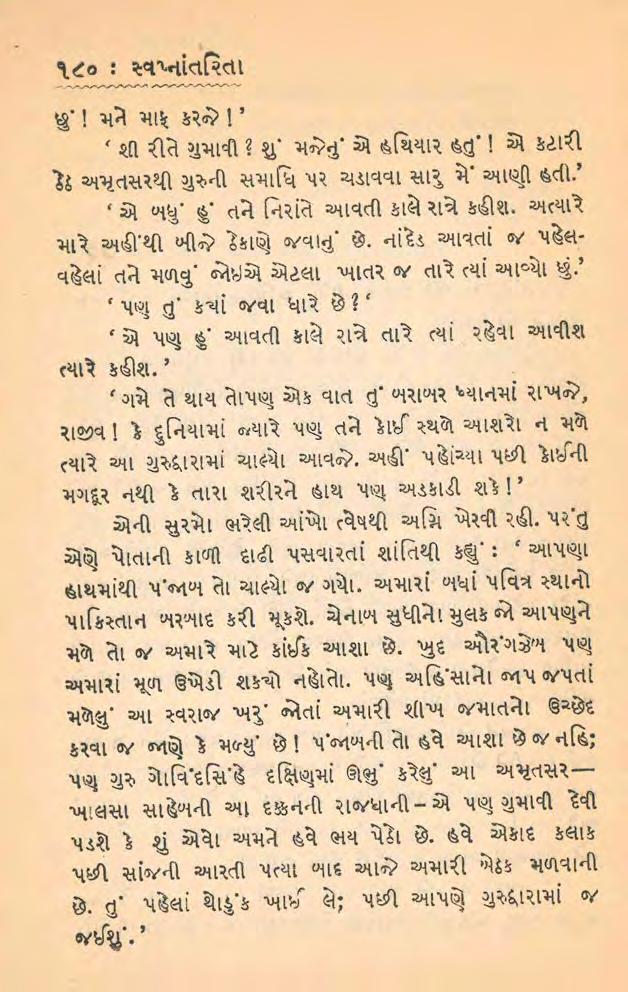 ૧૮૦ : સ્વપ્નાંતરિતા
છું! મને માફ કરજે!’
‘ શી રીતે ગુમાવી ? શું મજેનું એ હથિયાર હતું! એ કટારી
ઠેઠ અમૃતસરથી ગુરુની સમાધિ પર ચડાવવા સારુ મેં આણી હતી.’
‘ એ બધું હું તને નિરાંતે આવતી કાલે રાત્રે કહીશ. અત્યારે
મારે અહીંથી બીજે ઠેકાણે જવાનું છે. નાંદેડ આવતાં જ પહેલ-
વહેલાં તને મળવું જોઇએ એટલા ખાતર જ તારે ત્યાં આવ્યો છું.’
‘ પણ તું કયાં જવા ધારે છે ? ‘
‘ એ પણ હું આવતી કાલે રાત્રે તારે ત્યાં રહેવા આવીશ
ત્યારે કહીશ. ’
‘ ગમે તે થાય તોપણ એક વાત તું બરાબર ધ્યાનમાં રાખજે,
રાજીવ! કે દુનિયામાં જ્યારે પણ તને કોઈ સ્થળે આશરો ન મળે
ત્યારે આ ગુરુદ્વારામાં ચાલ્યો આવજે. અહીં પહોંચ્યા પછી કોઈની
મગદૂર નથી કે તારા શરીરને હાથ પણ અડકાડી શકે!’
એની સુરમો ભરેલી આંખો ત્વેષથી અગ્નિ ખેરવી રહી. પરંતુ
એણે પોતાની કાળી દાઢી પસવારતાં શાંતિથી કહ્યું : ‘ આપણા
હાથમાંથી પંજાબ તો ચાલ્યો જ ગયો. અમારાં બધાં પવિત્ર સ્થાનો
પાકિસ્તાન બરબાદ કરી મૂકશે. ચેનાબ સુધીનો મુલક જો આપણને
મળે તો જ અમારે માટે કાંઈક આશા છે. ખુદ ઔરંગઝેબ પણ
અમારાં મૂળ ઉખેડી શકયો નહોતો. પણ અહિંસાનો જાપ જપતાં
મળેલું આ સ્વરાજ ખરું જોતાં અમારી શીખ જમાતનો ઉચ્છેદ
કરવા જ જાણે કે મળ્યું છે! પંજાબની તો હવે આશા છે જ નહિ;
પણ ગુરુ ગોવિંદસિંહે દક્ષિણમાં ઊભું કરેલું આ અમૃતસર—
ખાલસા સાહેબની આ દક્કનની રાજધાની – એ પણ ગુમાવી દેવી
પડશે કે શું એવો અમને હવે ભય પેઠો છે. હવે એકાદ કલાક
પછી સાંજની આરતી પત્યા બાદ આજે અમારી બેઠક મળવાની
છે. તું પહેલાં થોડુંક ખાઈ લે; પછી આપણે ગુરુદ્વારામાં જ
જઈશું.’